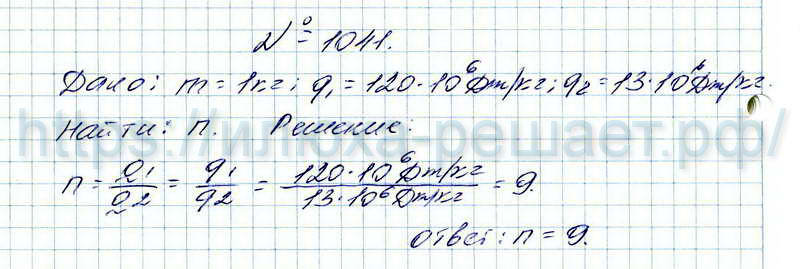 № 1041.
Дано: m = 1кг; q₁ = 120·10⁶ Дж/кг; q₂ = 13·10⁶ Дж/кг.
https://илюха-решает.рф/
Найти: n. Решение:
n = Q₁/Q₂ = q₁/q₂ = 120·10⁶ Дж/кг / 13·10⁶ Дж/кг = 9.
Ответ: n = 9.